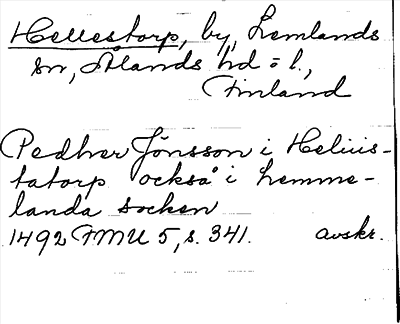 Hellestorp, by, Lemlands
sn, Ålands hd = l.,
Finland
Pedher Jönsson i Heliis-
tatorp också i Lemme-
landa socken
1492 FMU 5, s. 341. avskr.